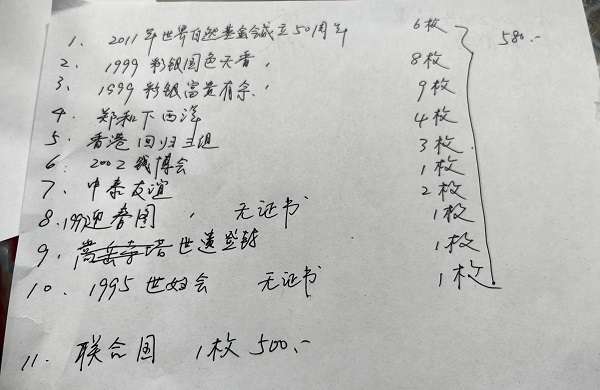 1、2011年世界自然基金会成立50周年 6枚 580.-
2、1999彩银国色天香、 8枚
3、1999彩银富贵有余、 9枚
4、郑和下西洋 4枚
5、香港回归三组 3枚
6、2002钱博会 1枚
7、中泰友谊 2枚
8.1997迎春图、无证书 1枚
9、世遗登封 1枚
10、1995世妇会 无证书 1枚
11、联合国 1枚 500.-